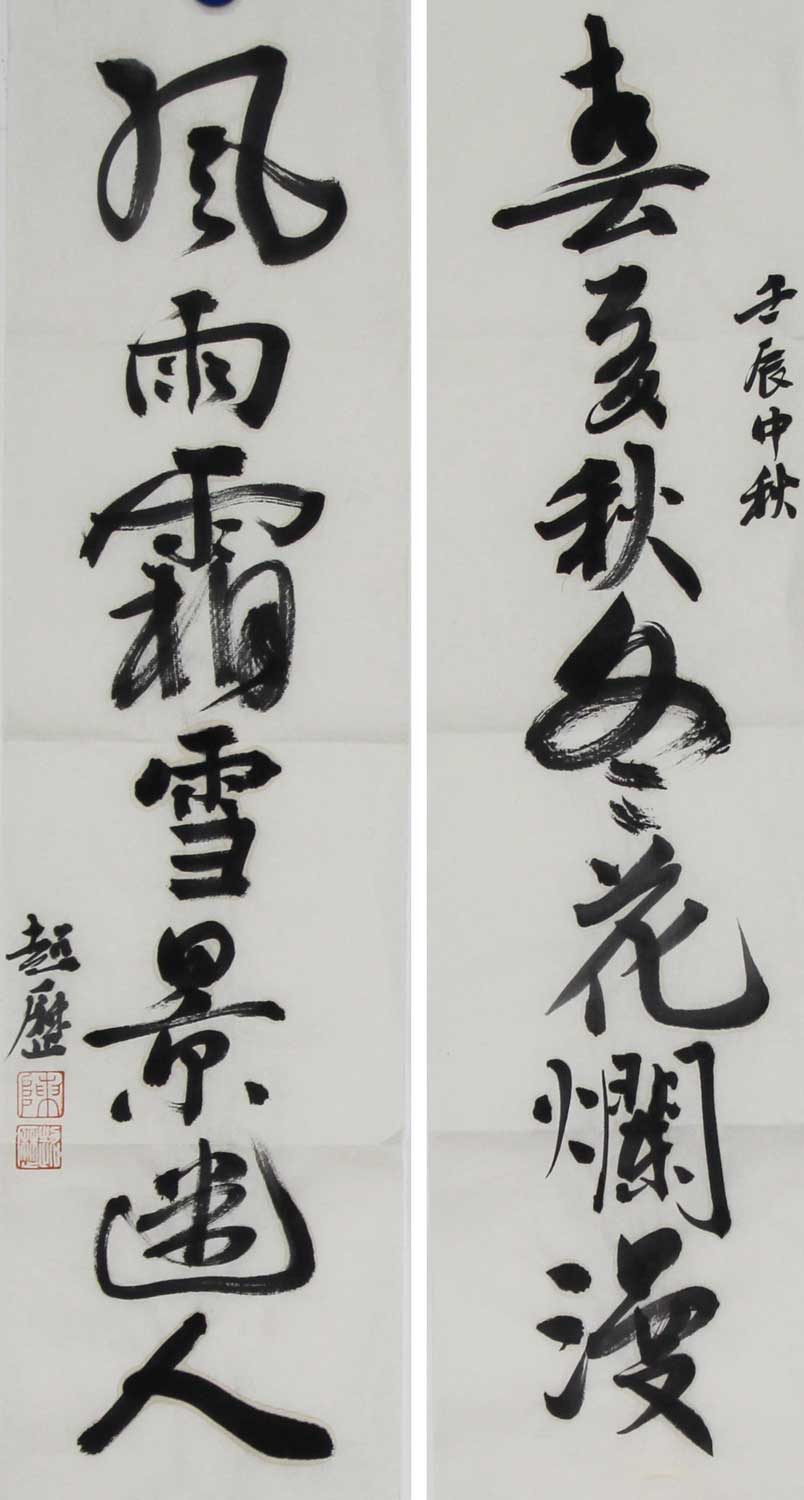 壬辰中秋
春夏秋冬花爛漫
風雨霜雪景迷人
超歷
陳